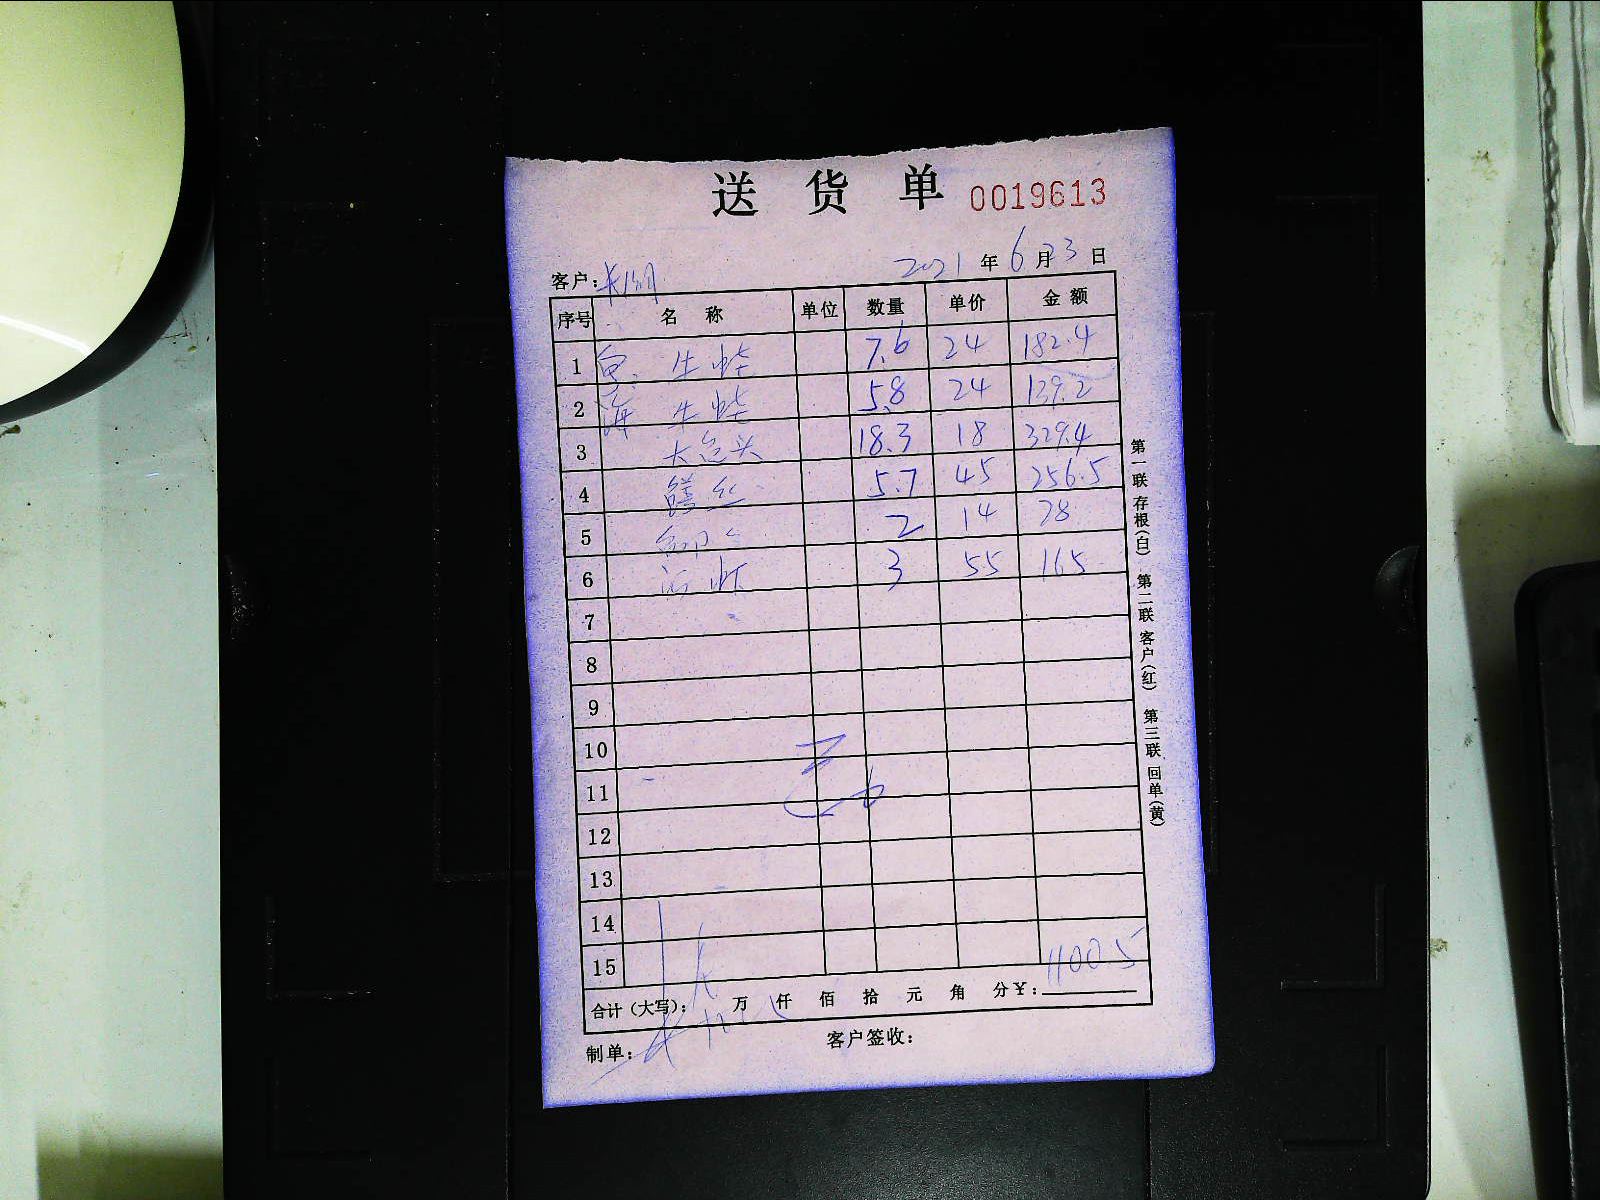 送 货 单 0019613
客户: 2021 年 6 月 3 日
序号 名 称 单位 数量 单价 金 额
1 生 7.6 24 182.4
2 海 生 5.8 24 139.2
3 大 头 18.3 18 329.4
4 鳝丝 5.7 45 256.5
5 2 14 28
6 河虾 3 55 165
7
8
9
10
11
12
13
14
15
合计(大写): 万 仟 佰 拾 元 角 分¥: 1100.5
制单: 客户签收:
第一联 存根(白) 第二联 客户(红) 第三联 回单(黄)